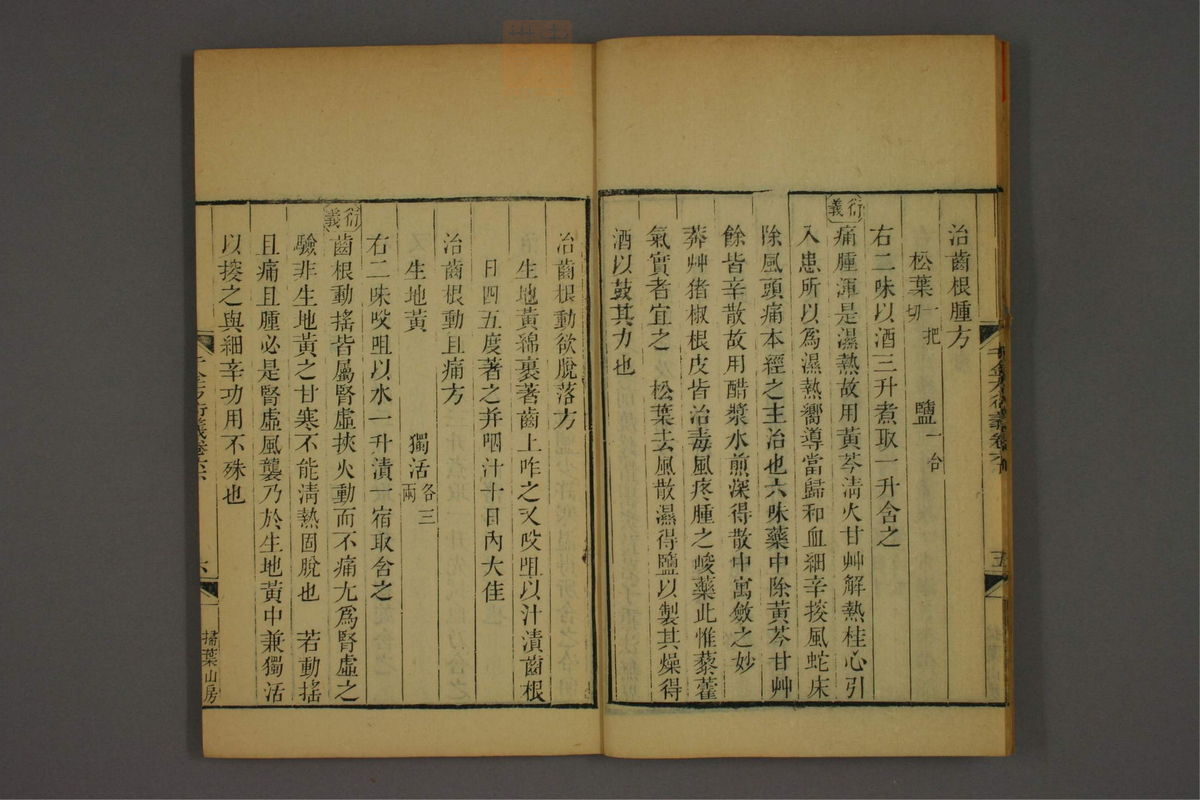 治齒根腫方
松葉一把切 鹽一合
右二味以酒三升煮取一升含之
衍義
痛腫渾是濕熱故用黃芩淸火甘艸解熱桂心引
入患所以爲濕熱嚮導當歸和血細辛搜風蛇床
除風頭痛本經之主治也六味藥中除黃芩甘艸
餘皆辛散故用醋漿水煎深得散中寓斂之妙
莽艸猪椒根皮皆治毒風疼腫之峻藥此惟藜藿
氣實者宜之 松葉去風散濕得鹽以製其燥得
酒以鼓其力也
千金方衍義卷六
五
治齒根動欲脫落方
生地黃綿裹著齒上咋之又㕮咀以汁漬齒根
日四五度著之并咽汁十日內大佳
治齒根動且痛方
生地黃 獨活各三兩
右二味㕮咀以水一升漬一宿取含之
衍義
齒根動搖皆屬腎虛挾火動而不痛尤爲腎虛之
驗非生地黃之甘寒不能淸熱固脫也 若動搖
且痛且腫必是腎虛風襲乃於生地黃中兼獨活
以搜之與細辛功用不殊也
千金方衍義卷六
六
掃葉山房